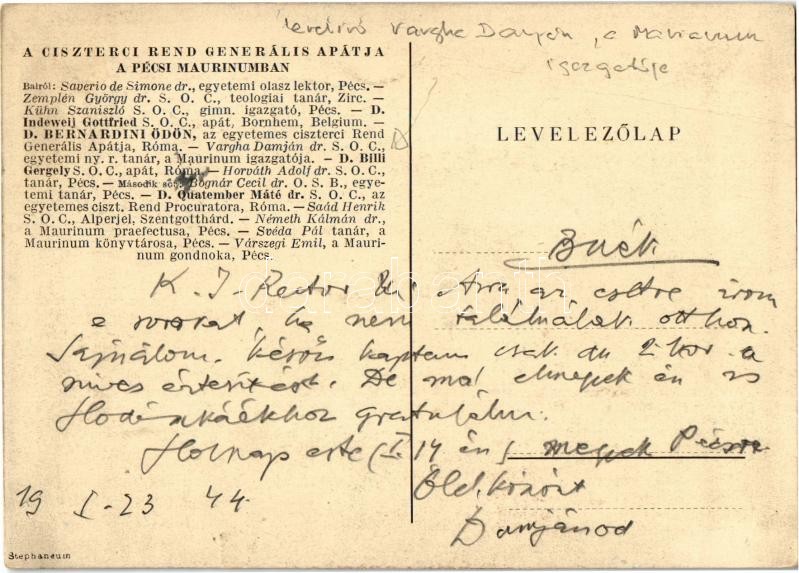 levélíró Vargha Damján, a Maurinum
igazgatója
A CISZTERCI REND GENERÁLIS APÁTJA
A PÉCSI MAURINUMBAN
Balról: Saverio de Simone dr., egyetemi olasz lektor, Pécs. —
Zemplén György dr. S. O. C., teologiai tanár, Zirc. —
Kühn Szaniszló S. O. C., gimn. igazgató, Pécs. — D.
Indeweij Gottfried S. O. C., apát, Bornhem, Belgium. —
D. BERNARDINI ÖDÖN, az egyetemes ciszterci Rend
Generális Apátja, Róma. — Vargha Damján dr. S. O. C.,
egyetemi ny. r. tanár, a Maurinum igazgatója. — D. Billi
Gergely S. O. C., apát, Róma. — Horváth Adolf dr. S. O. C.,
tanár, Pécs. — Második sor: Bognár Cecil dr. O. S. B., egye-
temi tanár, Pécs. — D. Quatember Máté dr. S. O. C., az
egyetemes ciszt. Rend Procuratora, Róma. — Saád Henrik
S. O. C., Alperjel, Szentgotthárd. — Németh Kálmán dr.,
a Maurinum praefectusa, Pécs. — Svéda Pál tanár, a
Maurinum könyvtárosa, Pécs. — Várszegi Emil, a Mauri-
num gondnoka, Pécs.
LEVELEZŐLAP
Buék
K. J. Rector Ur, Arra az esetre írom
e sorokat, ha nem találnálak otthon.
Sajnálom, későn kaptam csak du 2 kor a
szíves értesítést. De ma én is
gratulálni.
Holnap este (I. 14 én) megyek Pécsre
Ölel
Damjánod
19 I-23 44.
Stephaneum
darabanth